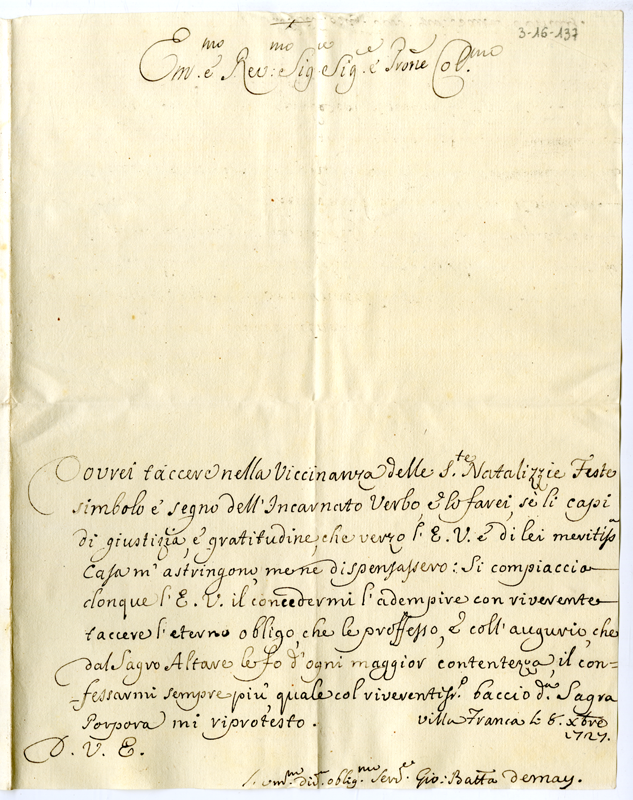 3-16-137
Em.mo e Rev.mo Sig.re Sig.e e Prone Col.mo
Dovrei taccere nella Viccinanza delle S.te Natalizzie Feste
simbolo e segno dell'Incarnato Verbo, e lo farei, sè li capi
di giustizia, e gratitudine, che verzo l'E. V. e di lei meritiss.a
Casa m'astringono, me ne dispensassero: Si compiaccia
donque l'E. V. il concedermi l'adempire con riverente
taccere l'eterno obligo, che le proffesso, e coll'augurio, che
dal Sagro Altare le fo d'ogni maggior contentezza, il con=
=fessarmi sempre più, quale col riverentiss.o baccio d.a Sagra
Porpora mi riprotesto. villa Franca li 6. xbre
1727.
D. V. E.
Um.mo div.o oblig.mo Serv.e Gio: Batta Demay.